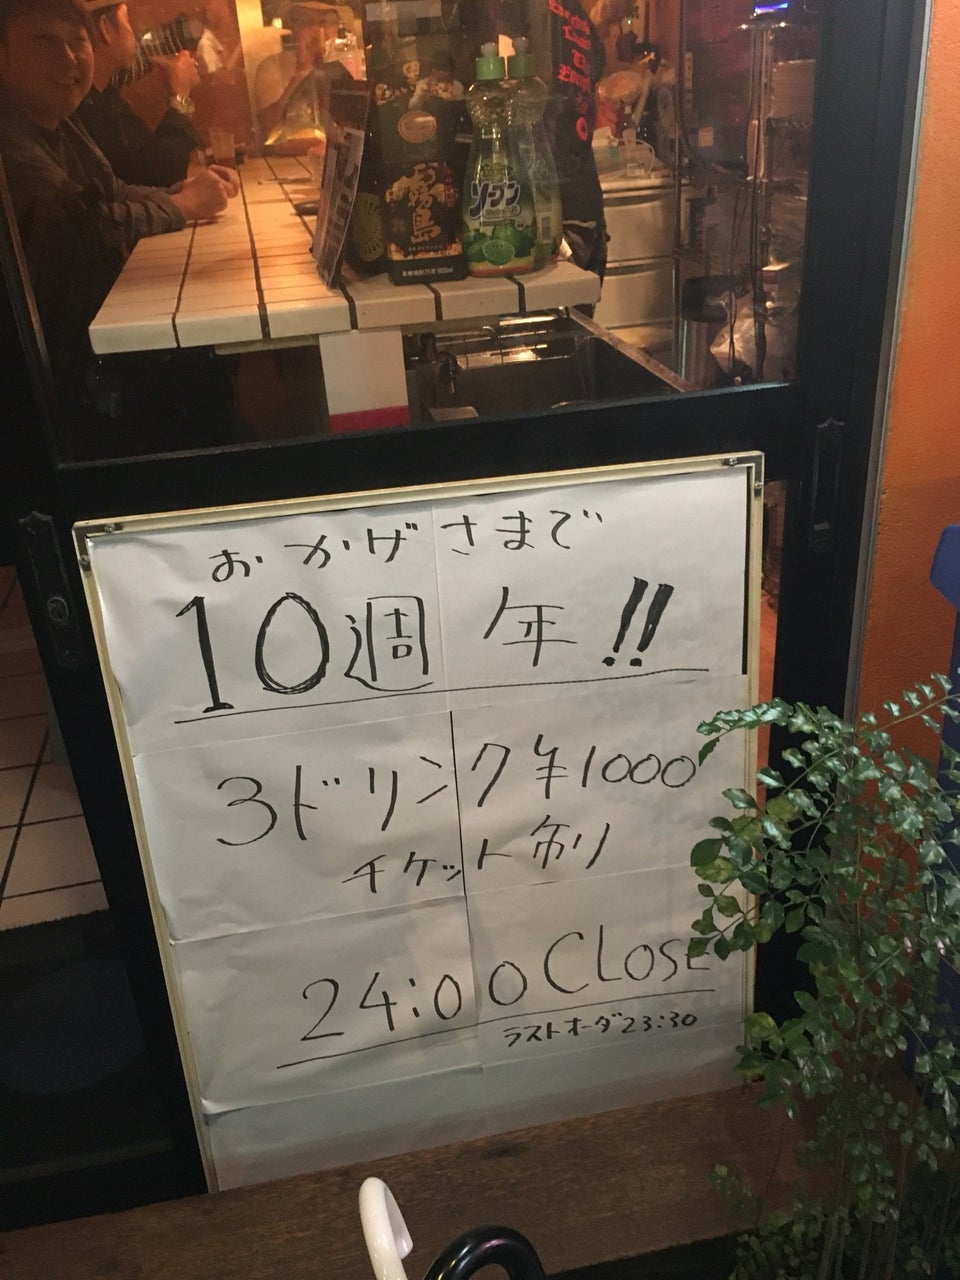 霧島
ソープン
1800ml
おかげさまで
10週年!!
3ドリンク¥1000
チケット
24:00 CLOSE
ラストオーダ23:30